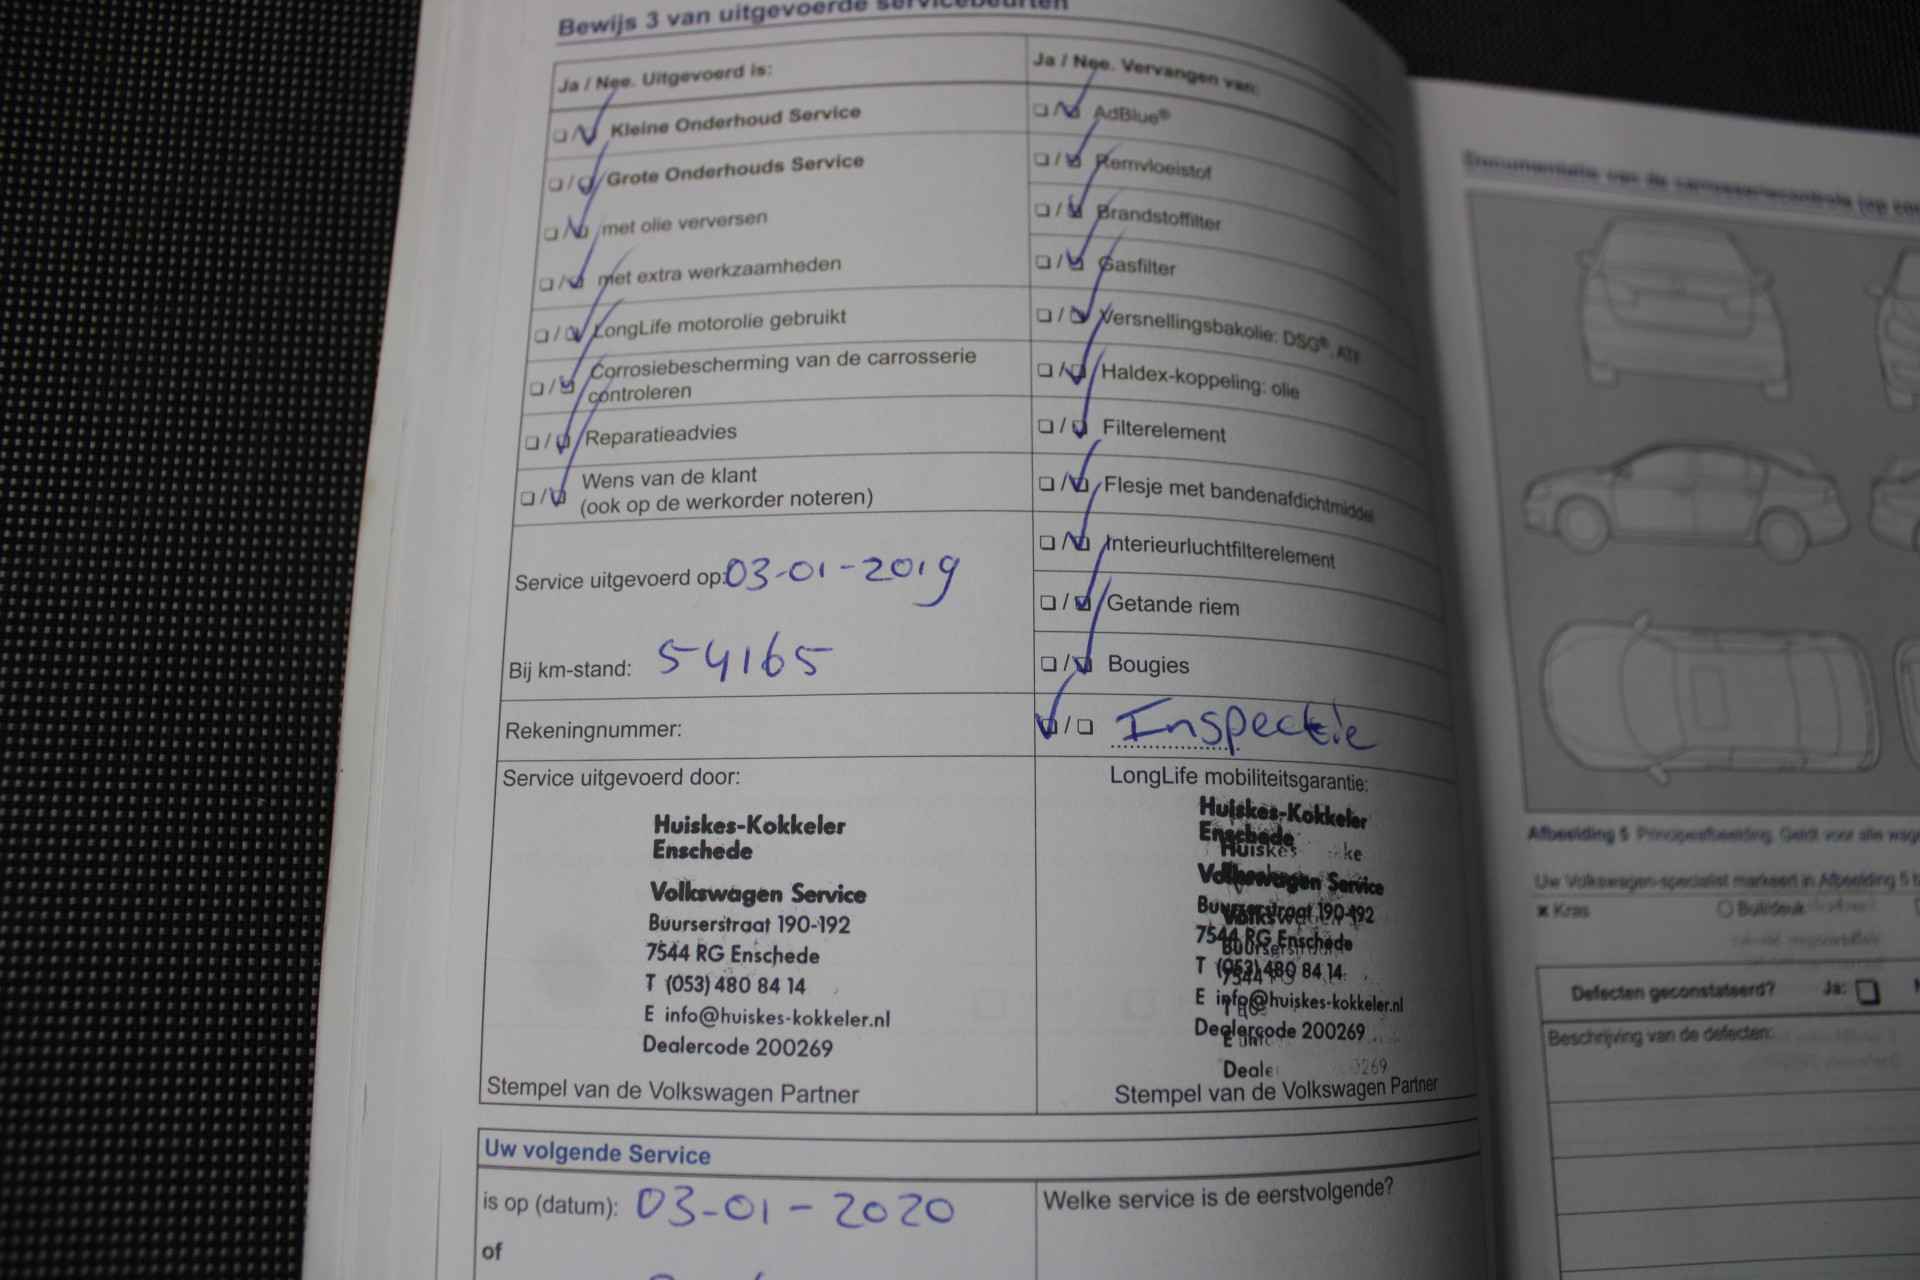 Bewijs 3 van uitgevoerde servicebeurten
Ja / Nee. Uitgevoerd is:
Kleine Onderhoud Service
Grote Onderhouds Service
met olie verversen
met extra werkzaamheden
LongLife motorolie gebruikt
Corrosiebescherming van de carrosserie
controleren
Reparatieadvies
Wens van de klant
(ook op de werkorder noteren)
Service uitgevoerd op: 03-01-2019
Bij km-stand: 54165
Rekeningnummer:
Ja / Nee. Vervangen van:
AdBlue®
Remvloeistof
Brandstoffilter
Gasfilter
Versnellingsbakolie: DSG®, ATF
Haldex-koppeling: olie
Filterelement
Flesje met bandenafdichtmiddel
Interieurluchtfilterelement
Getande riem
Bougies
Inspectie
Service uitgevoerd door:
Huiskes-Kokkeler
Enschede
Volkswagen Service
Buurserstraat 190-192
7544 RG Enschede
T (053) 480 84 14
E info@huiskes-kokkeler.nl
Dealercode 200269
Stempel van de Volkswagen Partner
LongLife mobiliteitsgarantie:
Huiskes-Kokkeler
Enschede
Volkswagen Service
Buurserstraat 190-192
7544 RG Enschede
T (053) 480 84 14
E info@huiskes-kokkeler.nl
Dealercode 200269
Stempel van de Volkswagen Partner
Uw volgende Service
is op (datum): 03-01-2020
of
Welke service is de eerstvolgende?
Documentatie van de carrosseriecontrole
Afbeelding 5 Principeafbeelding: Geldt voor alle
Uw Volkswagen-specialist markeert in Afbeelding 5
Kras
Buil/deuk
Defecten geconstateerd? Ja:
Beschrijving van de defecten: